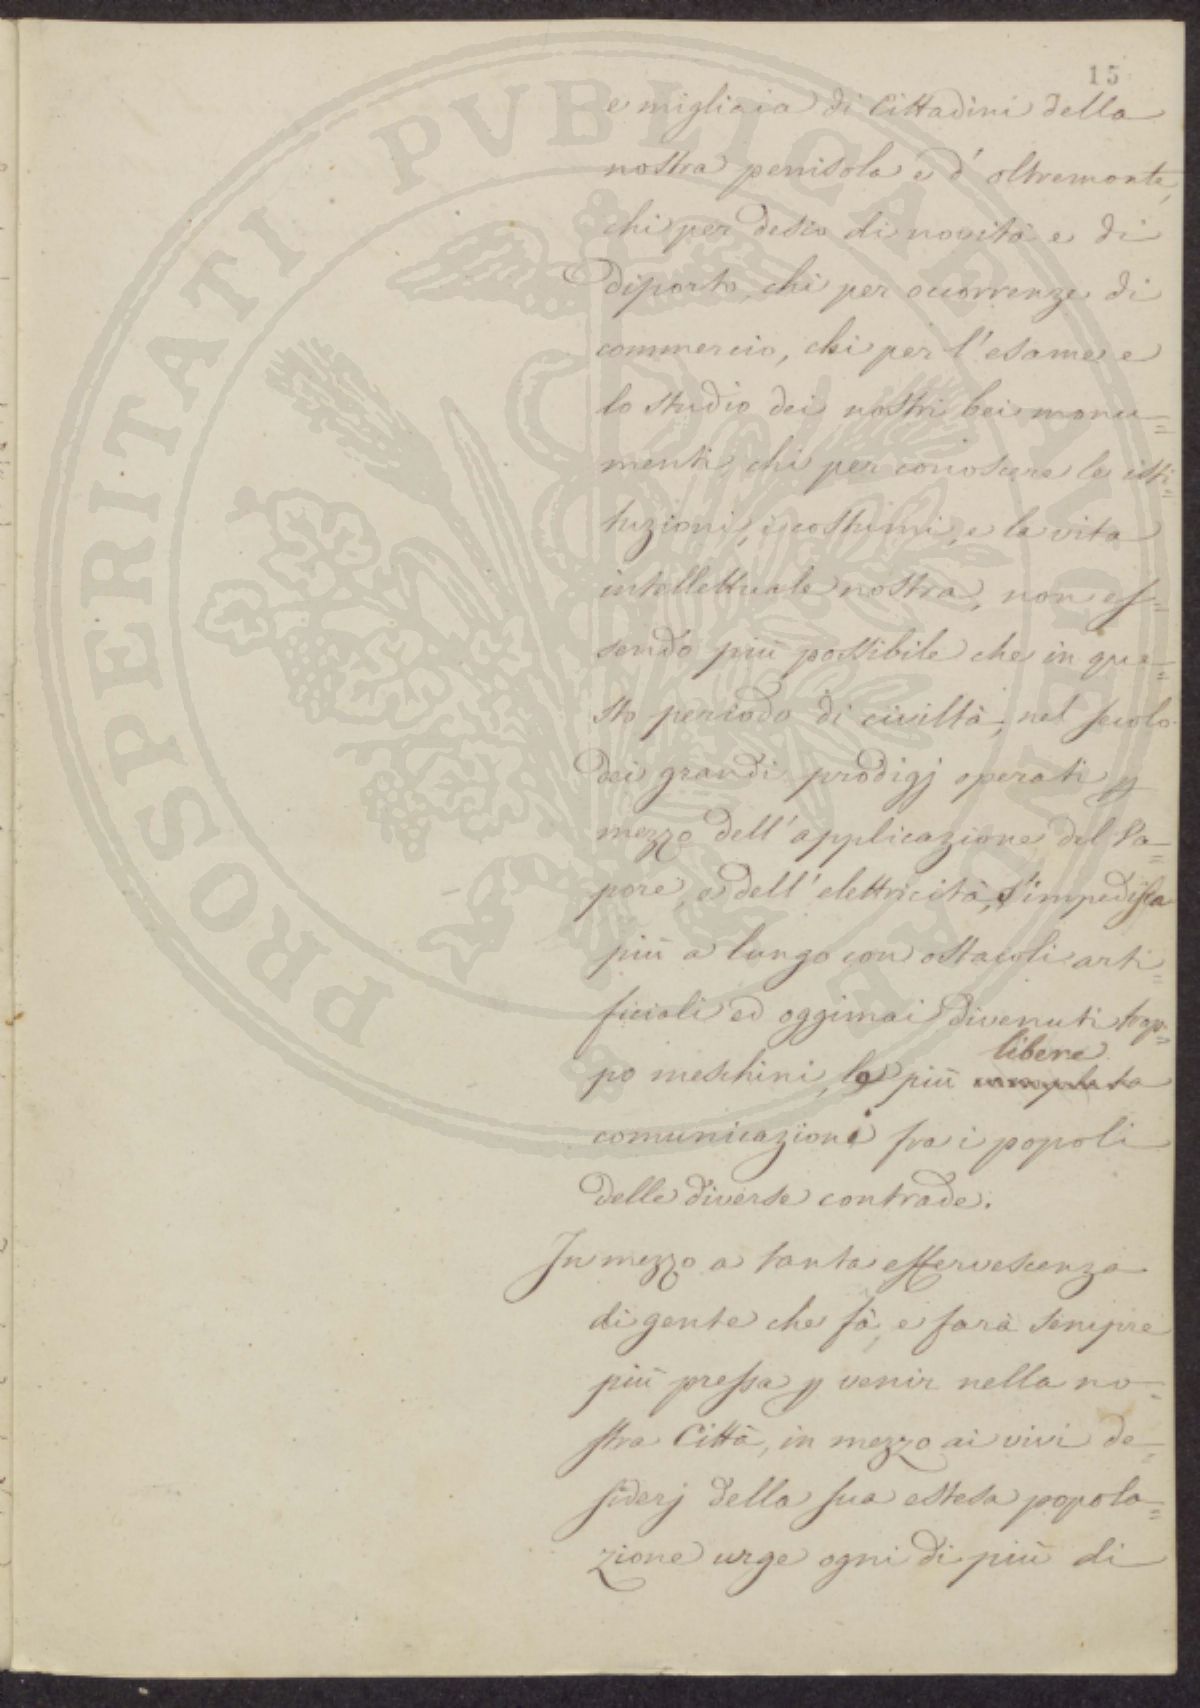 15
e migliaia di Cittadini della
nostra penisola e d' oltremonte,
chi per desio di novità e di
diporto, chi per occorrenze di
commercio, chi per l' esame e
lo studio dei nostri bei monu=
menti, chi per conoscere le isti=
tuzioni, i costumi, e la vita
intellettuale nostra, non es=
sendo più possibile che in que=
sto periodo di civiltà, nel secolo
dei grandi prodigj operati p
mezzo dell' applicazione del Va=
pore, e dell' elettricità, s' impedisca
più a lungo con ostacoli arti=
ficiali ed oggimai divenuti trop=
libere
po meschini, le più completa
comunicazioni fra i popoli
delle diverse contrade.
In mezzo a tanta effervescenza
di gente che fà, e farà sempre
più pressa p venir nella no=
stra Città, in mezzo ai vivi de=
siderj della sua estesa popola=
zione urge ogni dì più di
PROSPERITATI PVBLICAE